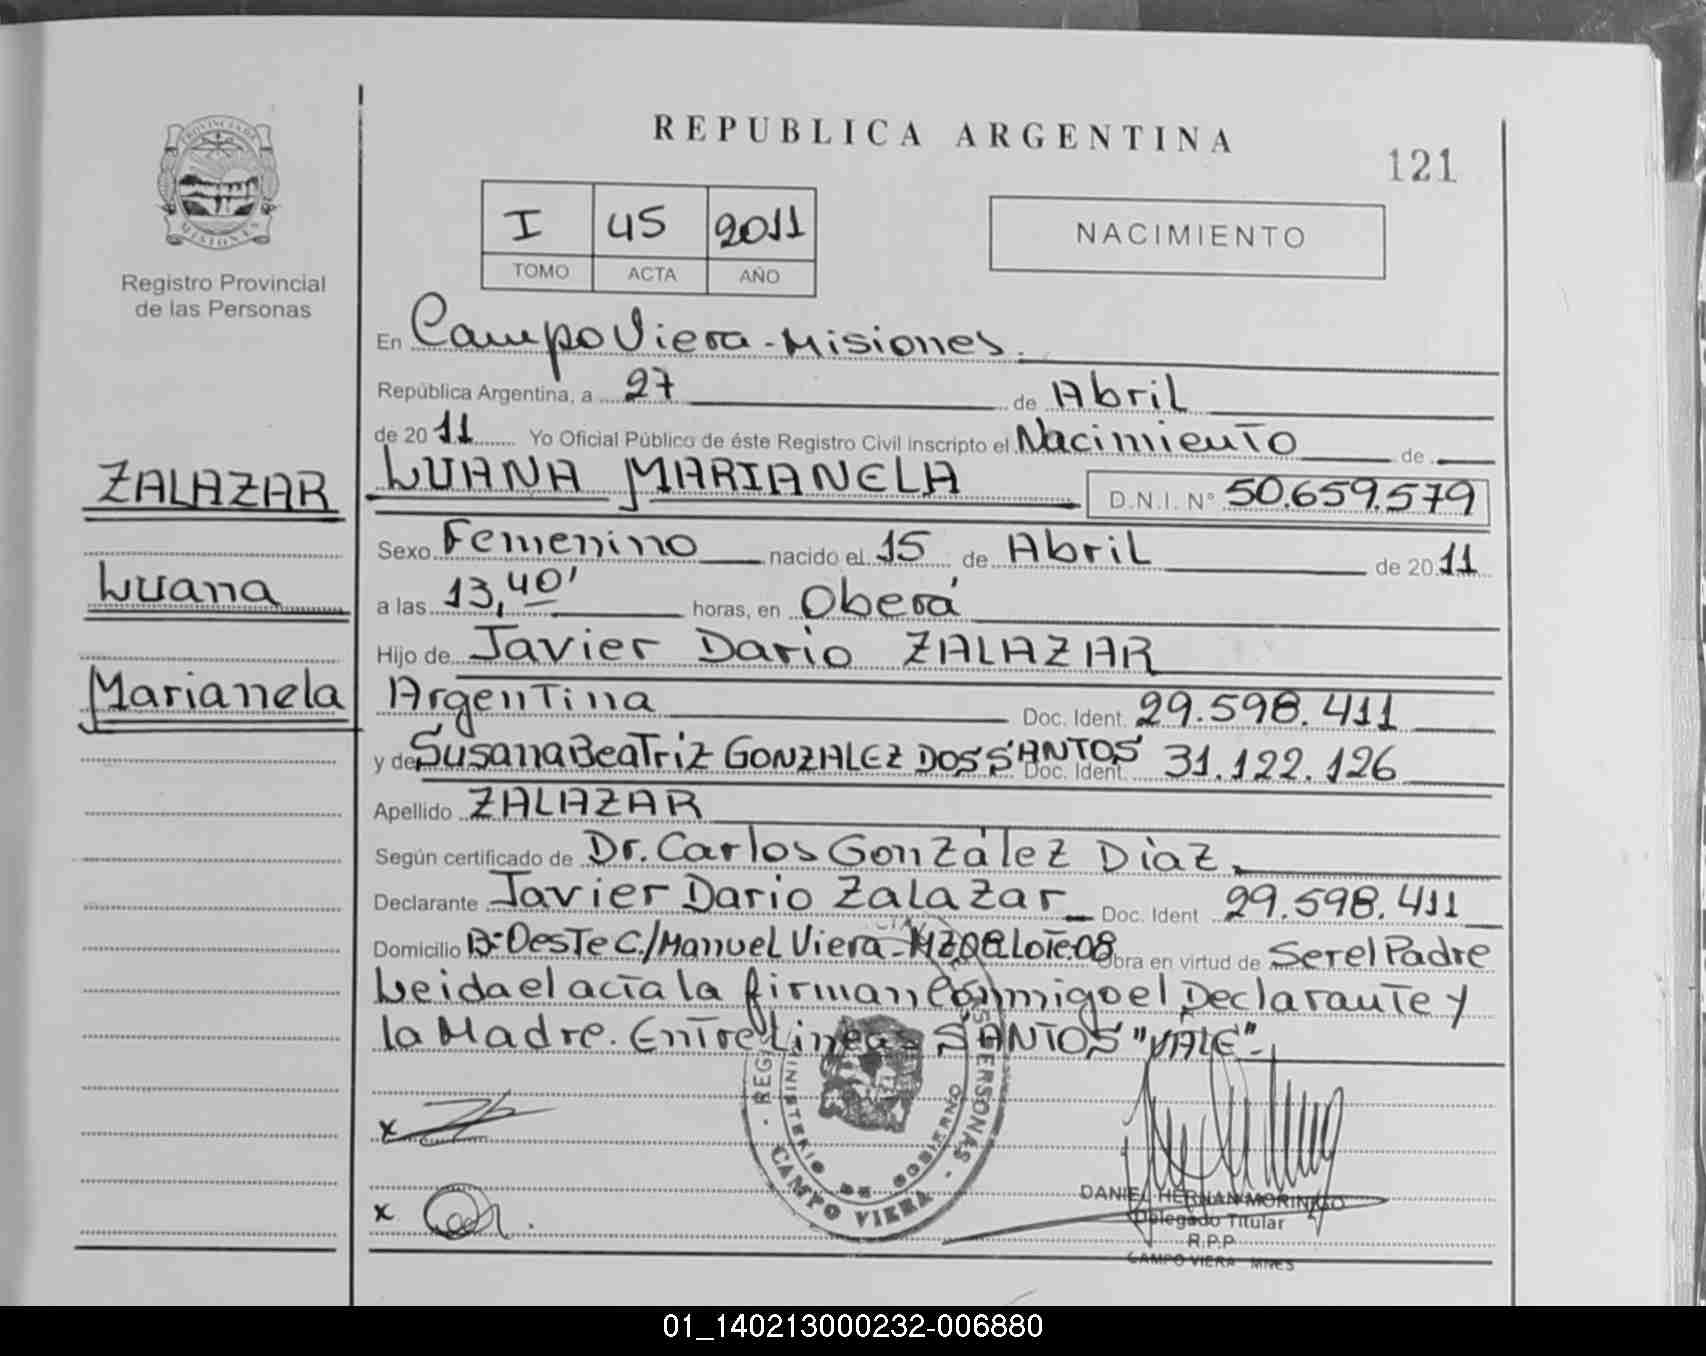 REPUBLICA ARGENTINA
121
PROVINCIA DE
MISIONES
Registro Provincial
de las Personas
I 45 2011
TOMO ACTA AÑO
NACIMIENTO
En Campo Viera - Misiones.
República Argentina, a 27 de Abril
de 2011 Yo Oficial Público de éste Registro Civil Inscripto el Nacimiento de
LUANA MARIANELA D.N.I. N° 50.659.579
ZALAZAR
Luana
Marianela
Sexo Femenino nacido el 15 de Abril de 2011
a las 13,40' horas, en Oberá
Hijo de Javier Dario ZALAZAR
Argentina Doc. Ident. 29.598.411
y de Susana Beatriz GONZALEZ DOS SANTOS Doc. Ident. 31.122.126
Apellido ZALAZAR
Según certificado de Dr. Carlos González Diaz.
Declarante Javier Dario Zalazar Doc. Ident 29.598.411
Domicilio B° Oeste C./Manuel Viera - MZ08 Lote.08 Obra en virtud de Ser el Padre
Leida el acta la firman Conmigo el Declarante y
la Madre. Entre Lineas SANTOS "VALE".
x
x
MINISTERIO DE GOBIERNO
CAMPO VIERA
PERSONAS
DANIEL HERNAN MORINIGO
Delegado Titular
R.P.P
CAMPO VIERA MNES
01_140213000232-006880